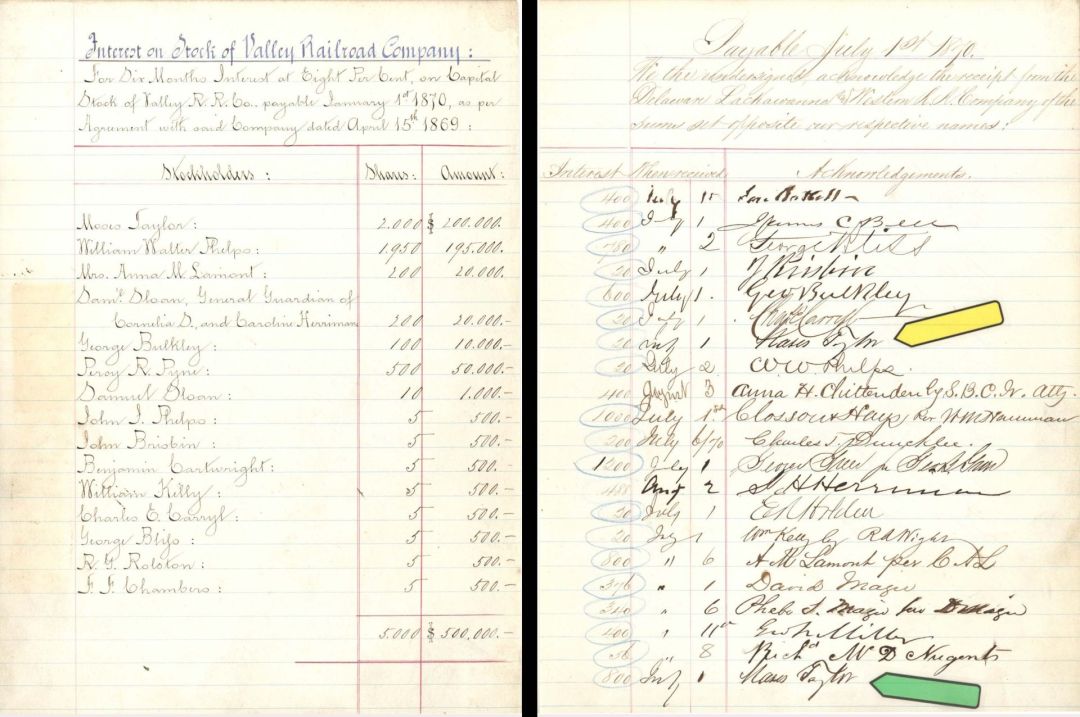 Interest on Stock of Valley Railroad Company:
For Six Months Interest at Eight Per Cent, on Capital
Stock of Valley R. R. Co. payable January 1st 1870, as per
Agrement with said Company dated April 15th 1869:
Stockholders: Shares: Amount:
Moses Taylor: 2.000 $ 200.000.-
William Walter Phelps: 1.950 195.000.-
Mrs. Anna M. Lamont: 200 20.000.-
Saml. Sloan, General Guardian of
Cornelia S. and Caroline Herriman 200 20.000.-
George Bulkley: 100 10.000.-
Percy R. Pyne: 500 50.000.-
Samuel Sloan: 10 1.000.-
John I. Phelps: 5 500.-
John Brisbin: 5 500.-
Benjamin Cartwright: 5 500.-
William Kelly: 5 500.-
Charles E. Carryl: 5 500.-
George Bliss: 5 500.-
R. G. Rolston: 5 500.-
F. F. Chambers: 5 500.-
5.000 $ 500,000.-
Payable July 1st 1870.
We the undersigned, acknowledge the receipt from the
Delaware Lackawanna and Western R. R. Company of the
sums set opposite our respective names:
Interest When received Acknowledgements.
400 July 15
400 July 1 James C Bell
780 " 2 George Bliss
20 July 1 J Brisbin
600 July 1. Geo Bulkley
20 July 1 Chas E Carryl
20 July 1 Moses Taylor
20 July 2. W W Phelps.
400 August 3 Anna H. Chittenden by S. B. C. Jr. Atty.
1000 July 1st Closson & Hays per
200 July 6/70 Charles T.
1200 July 1 George Greer
488 Aug 2 S H Herriman
20 July 1 E Holden
20 July 1 Wm Kelly by R D Wight
800 " 6 A M Lamont per C A L
376 " 1 David Magie
340 " 6 Phebe T. Magie per D Magie
400 " 11th Geo N Miller
56 " 8 Richd M D Nugents
800 July 1 Moses Taylor